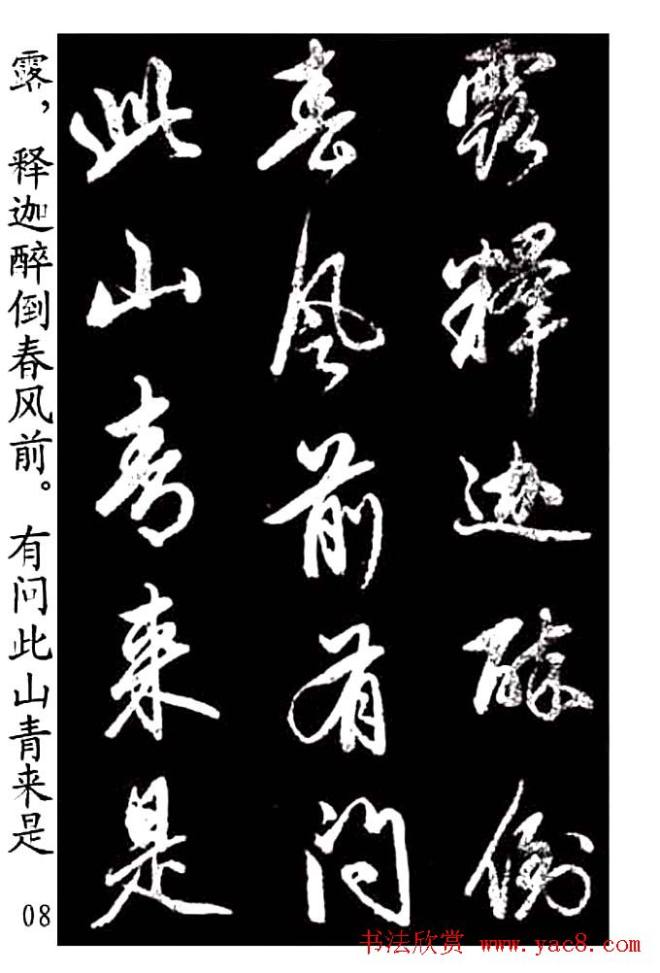 露釋迦醉倒
春風前有问
此山青来是
露，释迦醉倒春风前。有问此山青来是
08
书法欣赏 www.yac8.com